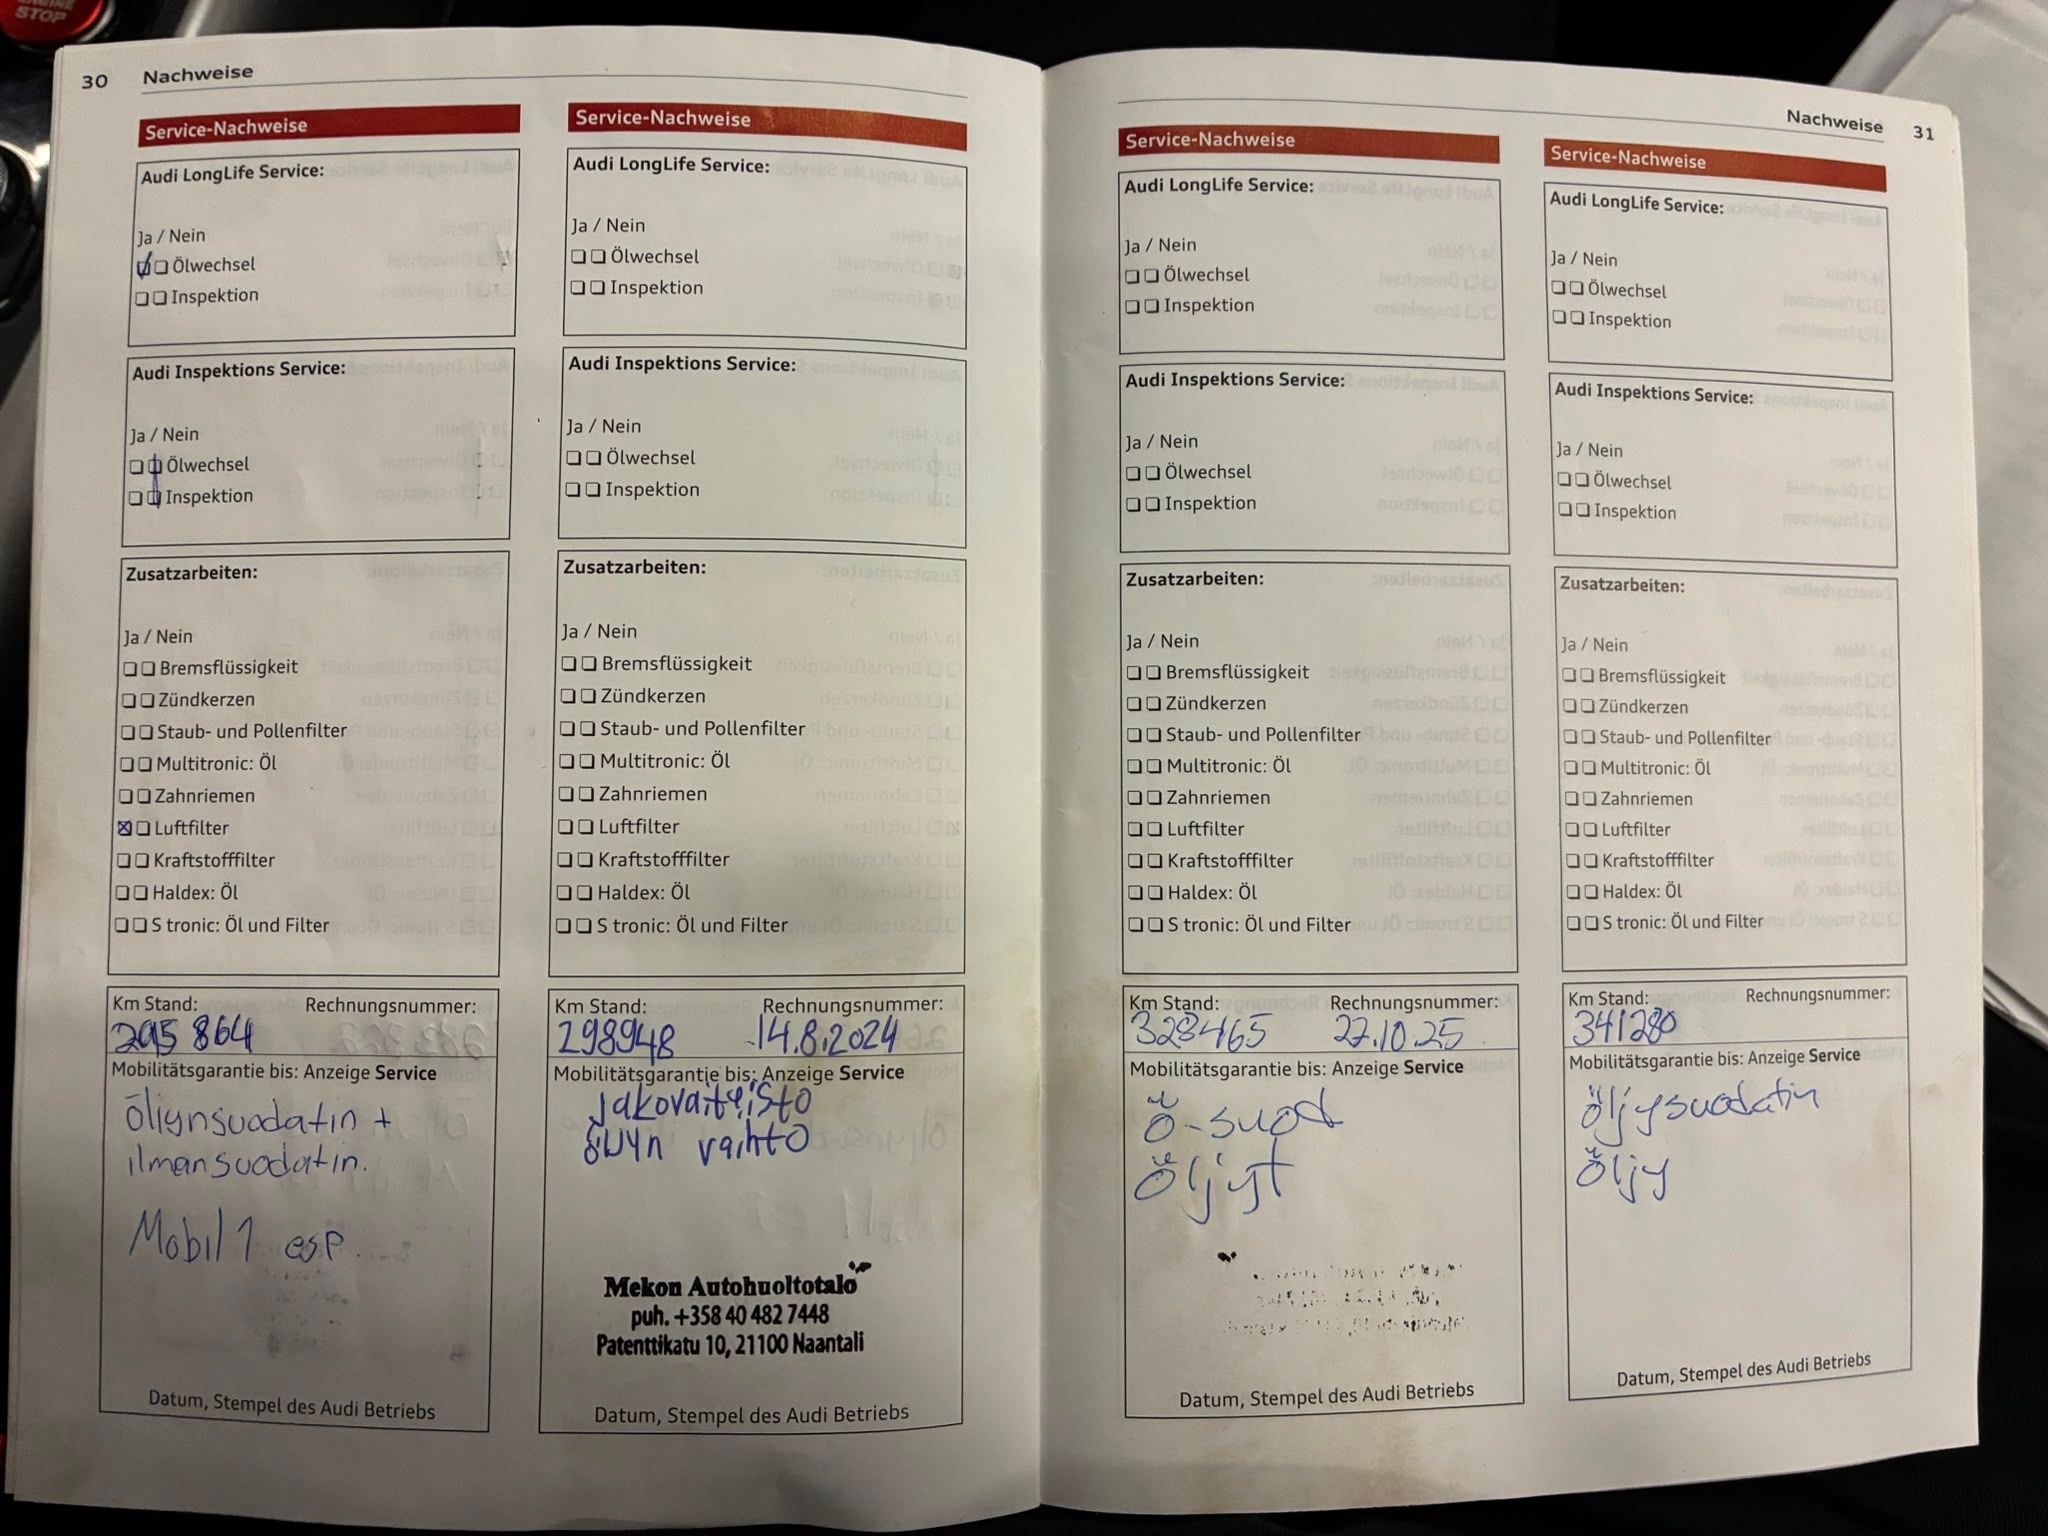 ENGINE
STOP
30 Nachweise
Service-Nachweise
Audi LongLife Service:
Ja / Nein
Ölwechsel
Inspektion
Audi Inspektions Service:
Ja / Nein
Ölwechsel
Inspektion
Zusatzarbeiten:
Ja / Nein
Bremsflüssigkeit
Zündkerzen
Staub- und Pollenfilter
Multitronic: Öl
Zahnriemen
Luftfilter
Kraftstofffilter
Haldex: Öl
S tronic: Öl und Filter
Km Stand: Rechnungsnummer:
295 864
Mobilitätsgarantie bis: Anzeige Service
öljynsuodatin +
ilmansuodatin.
Mobil 1 esp
Datum, Stempel des Audi Betriebs
Service-Nachweise
Audi LongLife Service:
Ja / Nein
Ölwechsel
Inspektion
Audi Inspektions Service:
Ja / Nein
Ölwechsel
Inspektion
Zusatzarbeiten:
Ja / Nein
Bremsflüssigkeit
Zündkerzen
Staub- und Pollenfilter
Multitronic: Öl
Zahnriemen
Luftfilter
Kraftstofffilter
Haldex: Öl
S tronic: Öl und Filter
Km Stand: Rechnungsnummer:
298948 14.8.2024
Mobilitätsgarantie bis: Anzeige Service
Jakovaiteisto
öljyn vaihto
Mekon Autohuoltotalo
puh. +358 40 482 7448
Patenttikatu 10, 21100 Naantali
Datum, Stempel des Audi Betriebs
Nachweise 31
Service-Nachweise
Audi LongLife Service:
Ja / Nein
Ölwechsel
Inspektion
Audi Inspektions Service:
Ja / Nein
Ölwechsel
Inspektion
Zusatzarbeiten:
Ja / Nein
Bremsflüssigkeit
Zündkerzen
Staub- und Pollenfilter
Multitronic: Öl
Zahnriemen
Luftfilter
Kraftstofffilter
Haldex: Öl
S tronic: Öl und Filter
Km Stand: Rechnungsnummer:
323465 27.10.25
Mobilitätsgarantie bis: Anzeige Service
ö-suod
Öljyt
Datum, Stempel des Audi Betriebs
Service-Nachweise
Audi LongLife Service:
Ja / Nein
Ölwechsel
Inspektion
Audi Inspektions Service:
Ja / Nein
Ölwechsel
Inspektion
Zusatzarbeiten:
Ja / Nein
Bremsflüssigkeit
Zündkerzen
Staub- und Pollenfilter
Multitronic: Öl
Zahnriemen
Luftfilter
Kraftstofffilter
Haldex: Öl
S tronic: Öl und Filter
Km Stand: Rechnungsnummer:
341280
Mobilitätsgarantie bis: Anzeige Service
öljysuodatin
Öljy
Datum, Stempel des Audi Betriebs